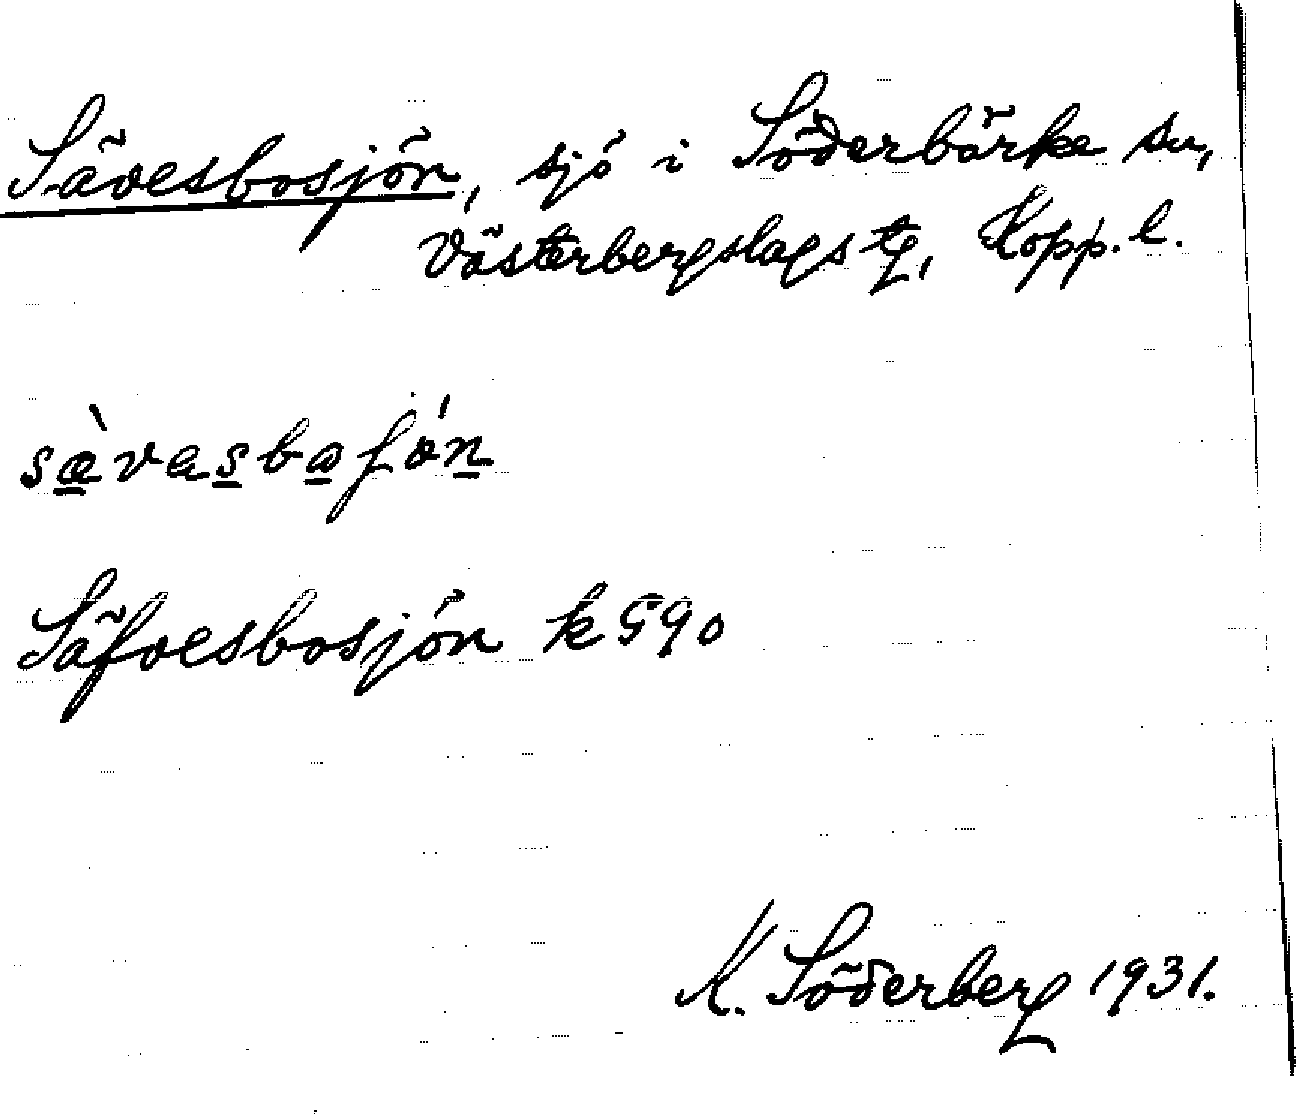 Sävesbosjön, sjö i Söderbärke sn,
Västerbergslags tg, Kopp. l.
sæ̀vɐsbaʃǿn
Säfvesbosjön k 590
K. Söderberg 1931.